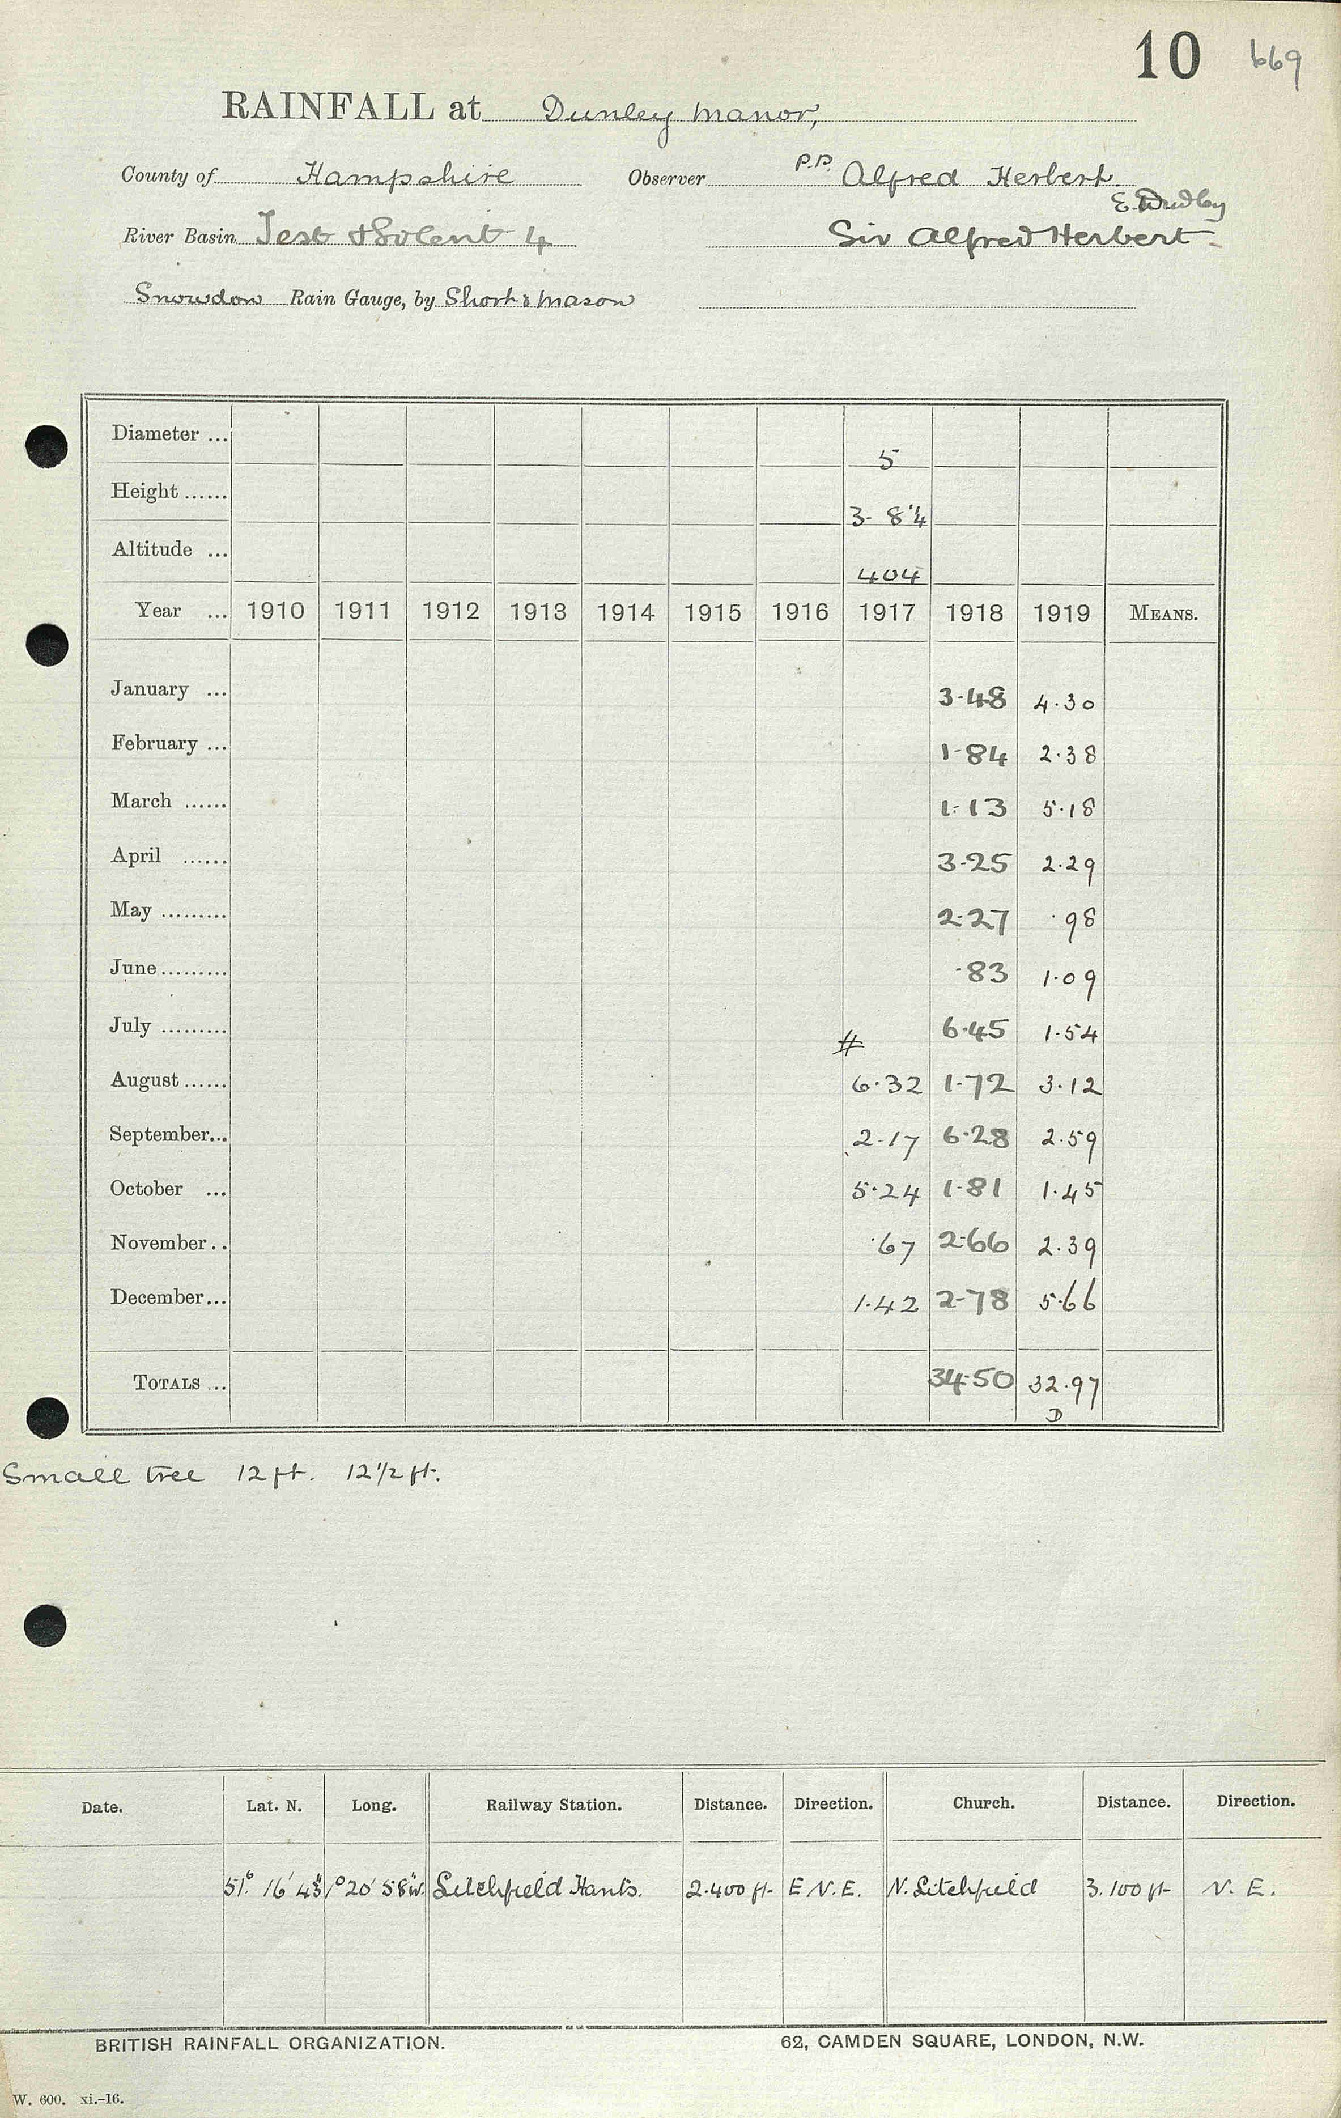 10 669
RAINFALL at Dunley Manor,
County of Hampshire Observer p.p. Alfred Herbert
E. Dudley
River Basin Test & Solent 4 Sir Alfred Herbert
Snowdon Rain Gauge, by Short & Mason
Diameter ... 5
Height ...... 3- 8¼
Altitude ... 404
Year ... 1910 1911 1912 1913 1914 1915 1916 1917 1918 1919 MEANS.
January ... 3.48 4.30
February ... 1.84 2.38
March ...... 1.13 5.18
April ...... 3.25 2.29
May ......... 2.27 .98
June ......... .83 1.09
July ......... # 6.45 1.54
August ...... 6.32 1.72 3.12
September... 2.17 6.28 2.59
October ... 5.24 1.81 1.45
November .. .67 2.66 2.39
December... 1.42 2.78 5.66
TOTALS ... 34.50 32.97
D
Small tree 12 ft. 12½ ft.
Date. Lat. N. Long. Railway Station. Distance. Direction. Church. Distance. Direction.
51° 16' 43" 1° 20' 58" W. Litchfield Hants. 2.400 ft. E N.E. N. Litchfield 3.100 ft. N. E.
BRITISH RAINFALL ORGANIZATION. 62, CAMDEN SQUARE, LONDON, N.W.
W. 600. xi.-16.